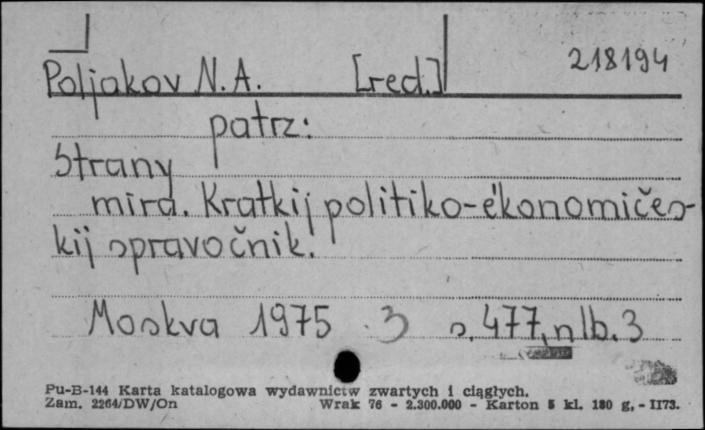 Poljakov N.A. [red.] 218194
patrz:
Strany
mira. Kratkij politiko-èkonomičes-
kij spravočnik.
Moskva 1975 3 s. 477, nlb. 3
Pu-B-144 Karta katalogowa wydawnictw zwartych i ciągłych.
Zam. 2264/DW/On Wrak 76 - 2.300.000 - Karton 5 kl. 180 g. - II73.